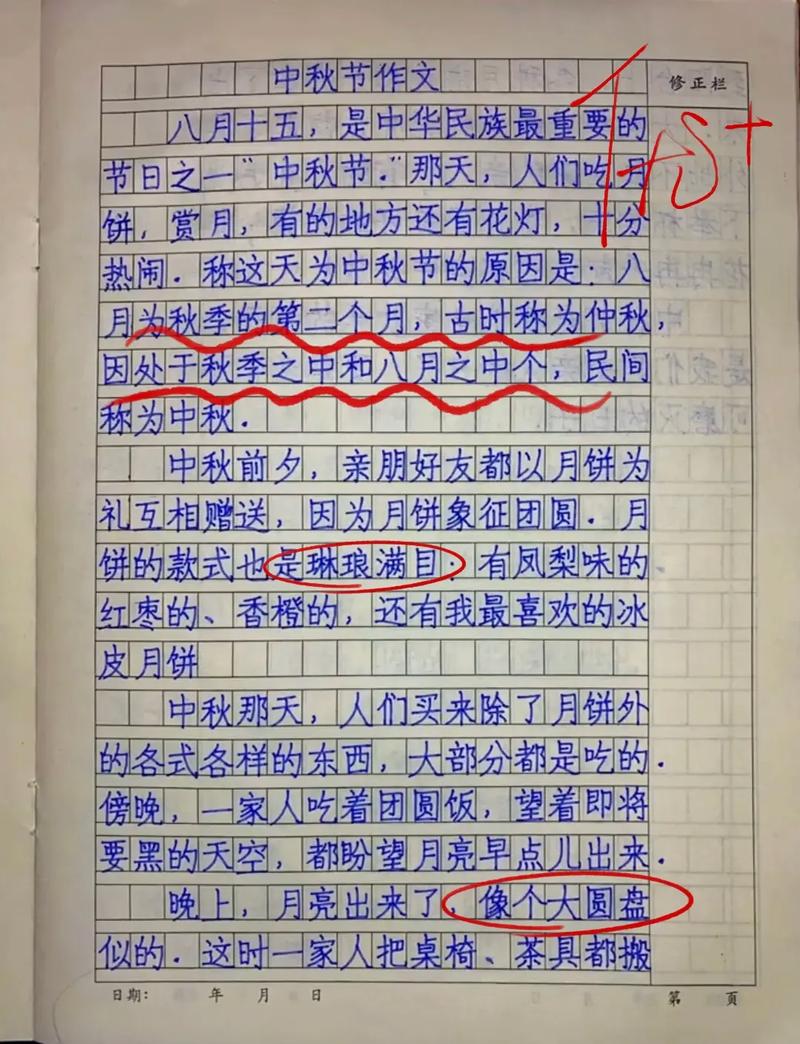 中秋节作文
修正栏
八月十五，是中华民族最重要的
节日之一"中秋节."那天，人们吃月
饼，赏月，有的地方还有花灯，十分
热闹．称这天为中秋节的原因是：八
月为秋季的第二个月，古时称为仲秋，
因处于秋季之中和八月之中个，民间
称为中秋．
中秋前夕，亲朋好友都以月饼为
礼互相赠送，因为月饼象征团圆．月
饼的款式也是琳琅满目：有凤梨味的．
红枣的、香橙的，还有我最喜欢的冰
皮月饼
中秋那天，人们买来除了月饼外
的各式各样的东西，大部分都是吃的．
傍晚，一家人吃着团圆饭，望着即将
要黑的天空，都盼望月亮早点儿出来．
晚上，月亮出来了，像个大圆盘
似的．这时一家人把桌椅、茶具都搬
日期： 年 月 日 第 页